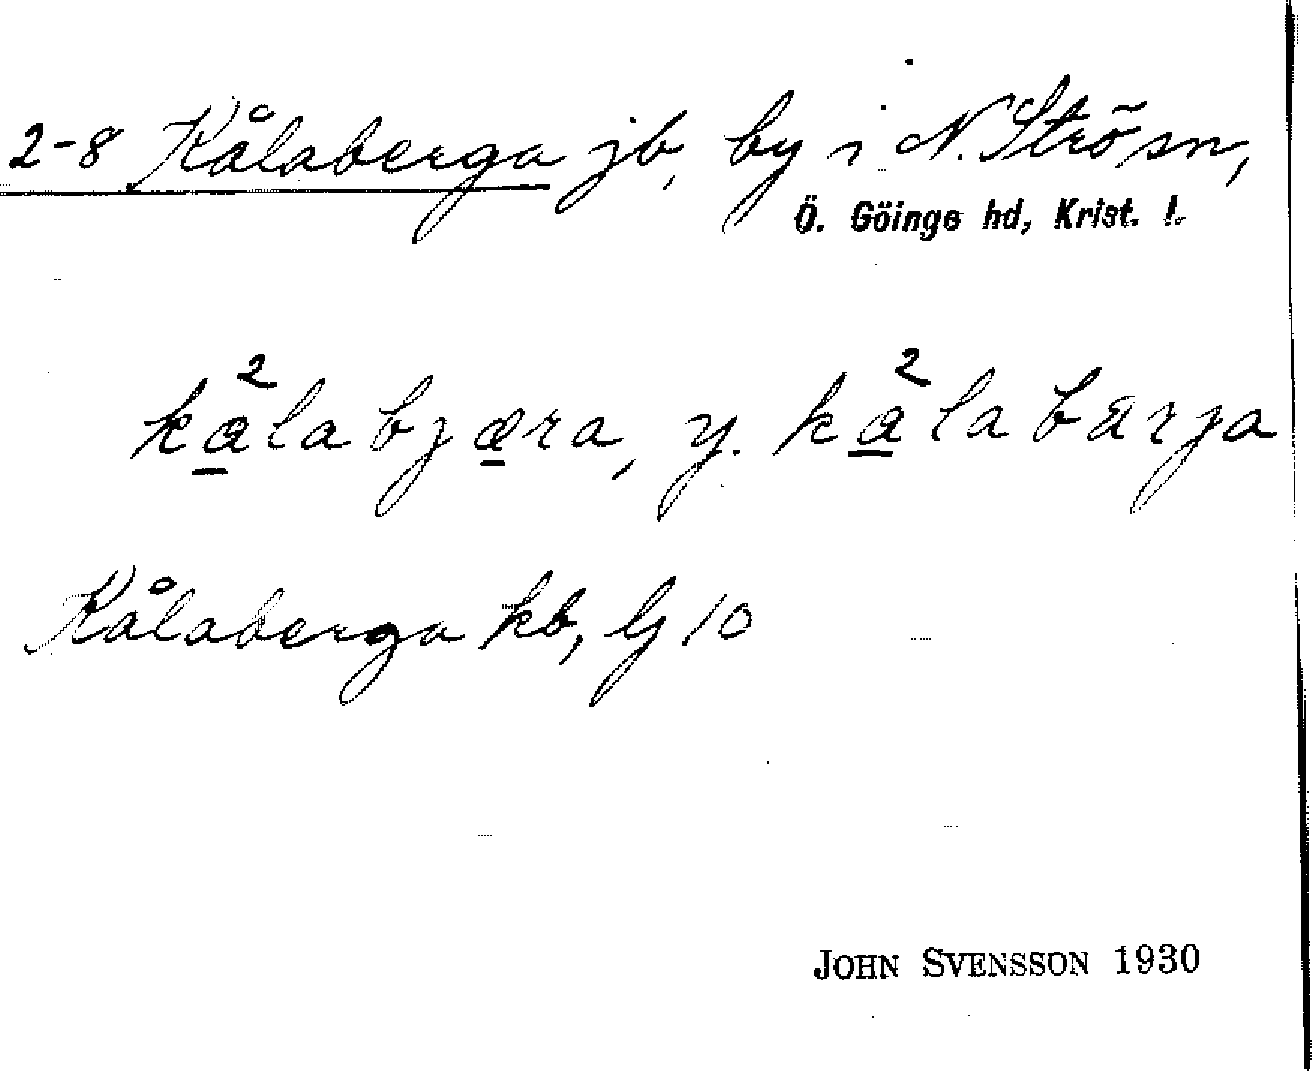 2-8 Kålaberga jb, by i N. Strö sn,
Ö. Göinge hd, Krist. l.
ka²labjæra, y. ka²labærja
Kålaberga kb, Gg 10
JOHN SVENSSON 1930